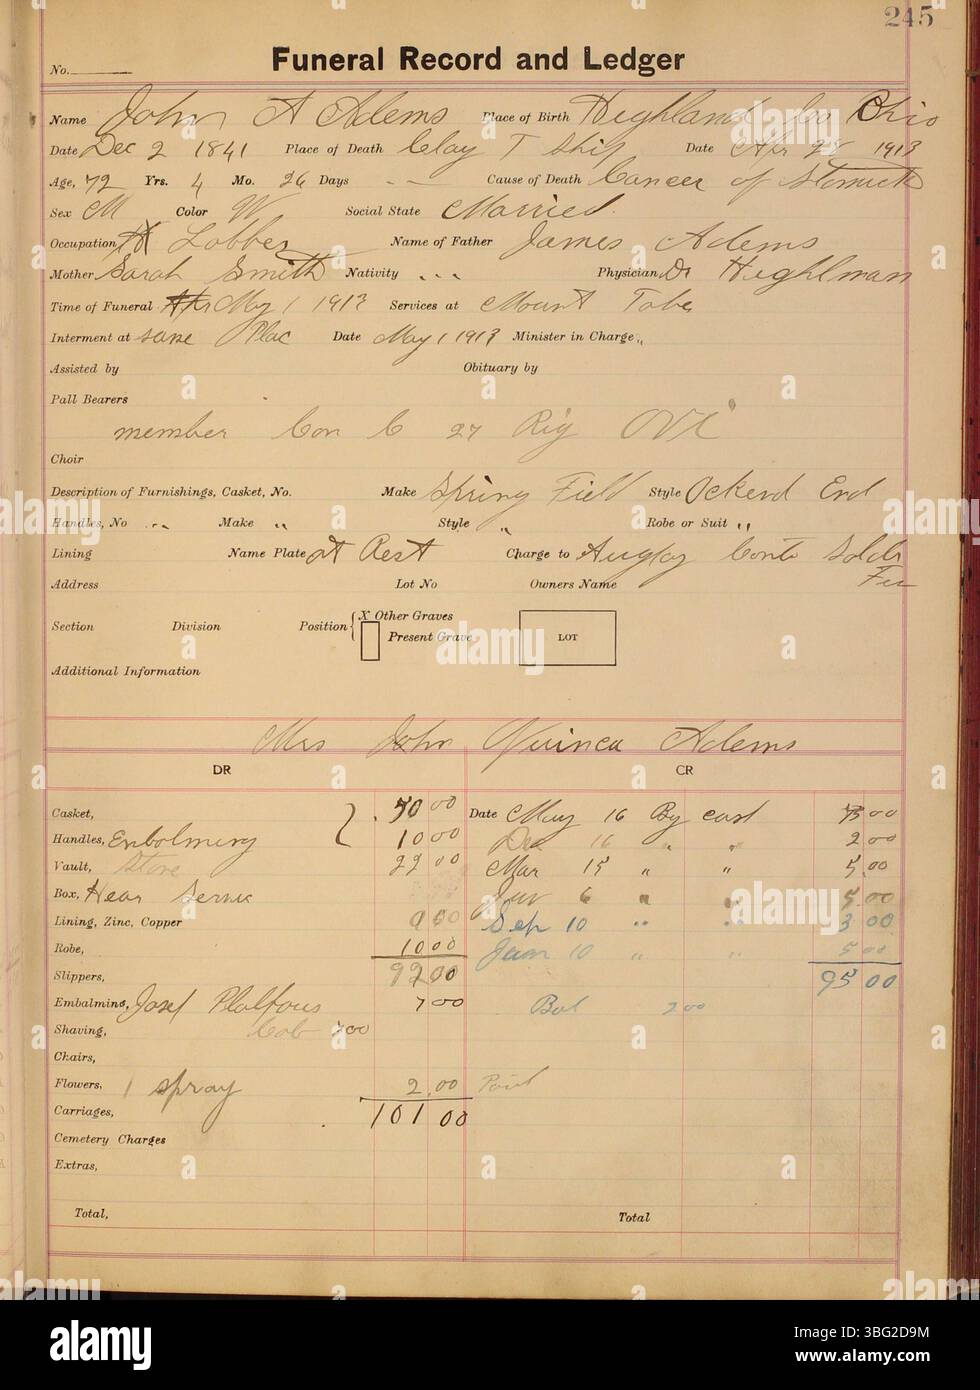 245
Funeral Record and Ledger
No.
Name John A Adems Place of Birth Heighland Co Ohio
Date Dec 2 1841 Place of Death Clay T Ship Date Apr 28 1913
Age, 72 Yrs. 4 Mo. 26 Days Cause of Death Cancer of Stomuch
Sex M Color W Social State Married
Occupation Lobber Name of Father James Adems
Mother Sarah Smith Nativity Physician Dr Heighlman
Time of Funeral May 1 1913 Services at Mount Tabe
Interment at same Plac Date May 1 1913 Minister in Charge "
Assisted by Obituary by
Pall Bearers
member Con C 27 Rig OVI
Choir
Description of Furnishings, Casket, No. Make Spring Field Style Ockerd End
Handles, No Make " Style " Robe or Suit "
Lining Name Plate at Rest Charge to Auglay Conte Soldr
Address Lot No Owners Name
Section Division Position X Other Graves
Present Grave
LOT
Additional Information
Mrs John Quinca Adems
DR CR
Casket, 50 00 Date May 16 By cash 00
Handles, Enbolmeng 10 00 Dec 16 " " 2 00
Vault, Store 22 00 Mar 15 " " 5.00
Box, Hear Servic 6 " " 5.00
Lining, Zinc, Copper 00 Sep 10 " " 3 00
Robe, 10 00 Jan 10 " " 5 00
Slippers, 92 00 95 00
Embalming, Josef Platfous 7 00 Bal 2 00
Shaving, Cob 7 00
Chairs,
Flowers, 1 spray 2.00 Paid
Carriages, 101 00
Cemetery Charges
Extras,
Total, Total
alamy
Image ID: 3BG2D9M
www.alamy.com